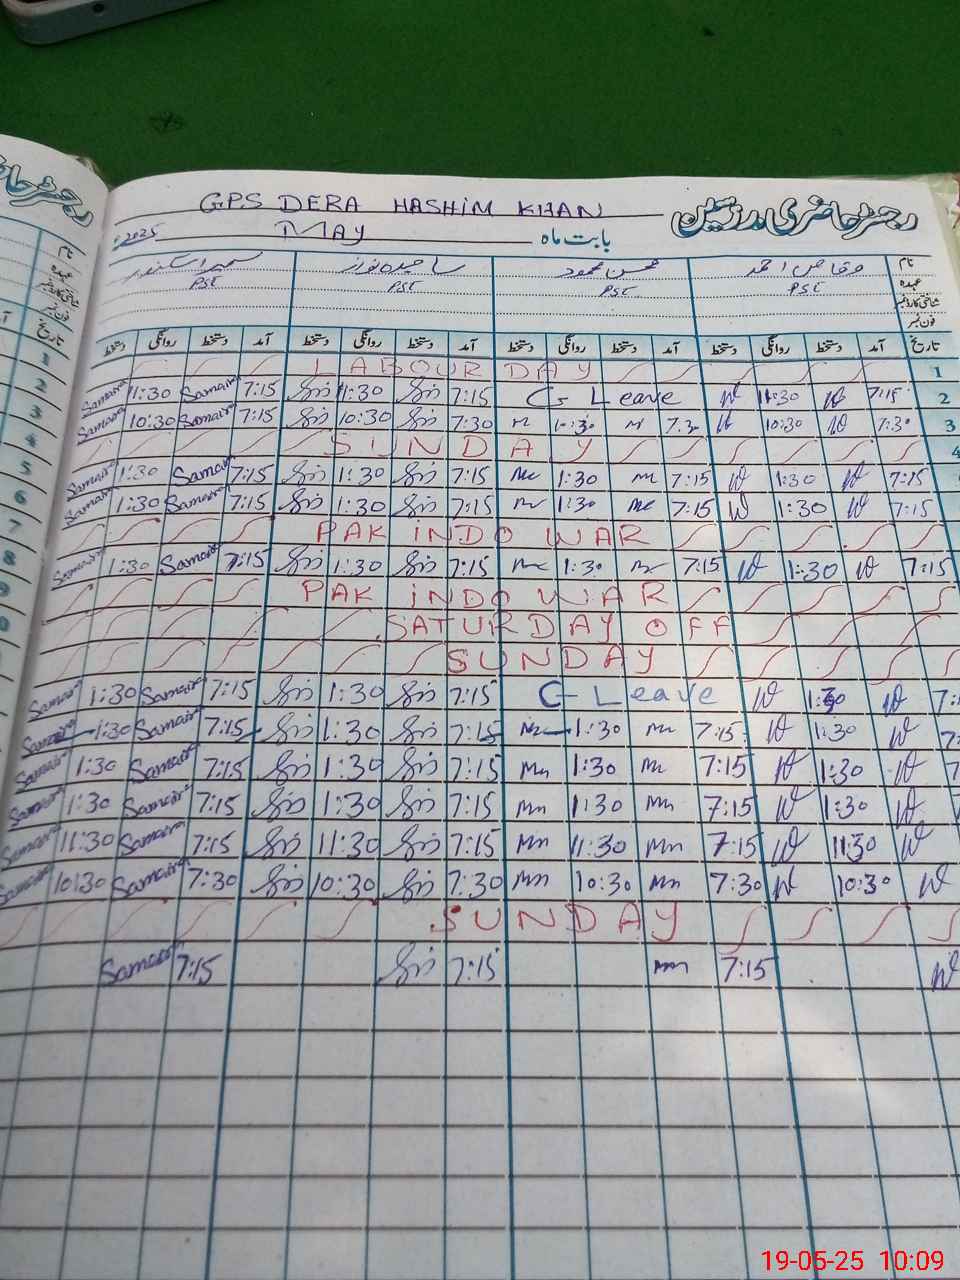 GPS DERA HASHIM KHAN
رجسٹر حاضری مدرسین
2025 MAY بابت ماہ
نام وقاص احمد محسن محمود ساجدہ نواز سمیرا سکندر
عہدہ PST PST PST PST
شناختی کارڈ نمبر
فون نمبر
تاریخ آمد دستخط روانگی دستخط آمد دستخط روانگی دستخط آمد دستخط روانگی دستخط آمد دستخط روانگی دستخط
LABOUR DAY 1
Samaira 11:30 Samaira 7:15 11:30 7:15 C Leave 11:30 7:15 2
Samaira 10:30 Samaira 7:15 10:30 7:30 10:30 7:30 10:30 7:30 3
SUNDAY 4
Samaira 1:30 Samaira 7:15 1:30 7:15 1:30 7:15 1:30 7:15
Samaira 1:30 Samaira 7:15 1:30 7:15 1:30 7:15 1:30 7:15
PAK INDO WAR
Samaira 1:30 Samaira 7:15 1:30 7:15 1:30 7:15 1:30 7:15
PAK INDO WAR
SATURDAY OFF
SUNDAY
Samaira 1:30 Samaira 7:15 1:30 7:15 C Leave 1:30
Samaira 1:30 Samaira 7:15 1:30 7:15 1:30 7:15 1:30
Samaira 1:30 Samaira 7:15 1:30 7:15 Mn 1:30 Mn 7:15 1:30
Samaira 1:30 Samaira 7:15 1:30 7:15 Mn 1:30 Mn 7:15 1:30
Samaira 11:30 Samaira 7:15 11:30 7:15 Mn 11:30 Mn 7:15 11:30
Samaira 10:30 Samaira 7:30 10:30 7:30 Mn 10:30 Mn 7:30 10:30
SUNDAY
Samaira 7:15 7:15 Mn 7:15
رجسٹر
نام
عہدہ
شناختی کارڈ نمبر
فون نمبر
تاریخ
1
2
3
4
5
6
7
8
9
19-05-25 10:09